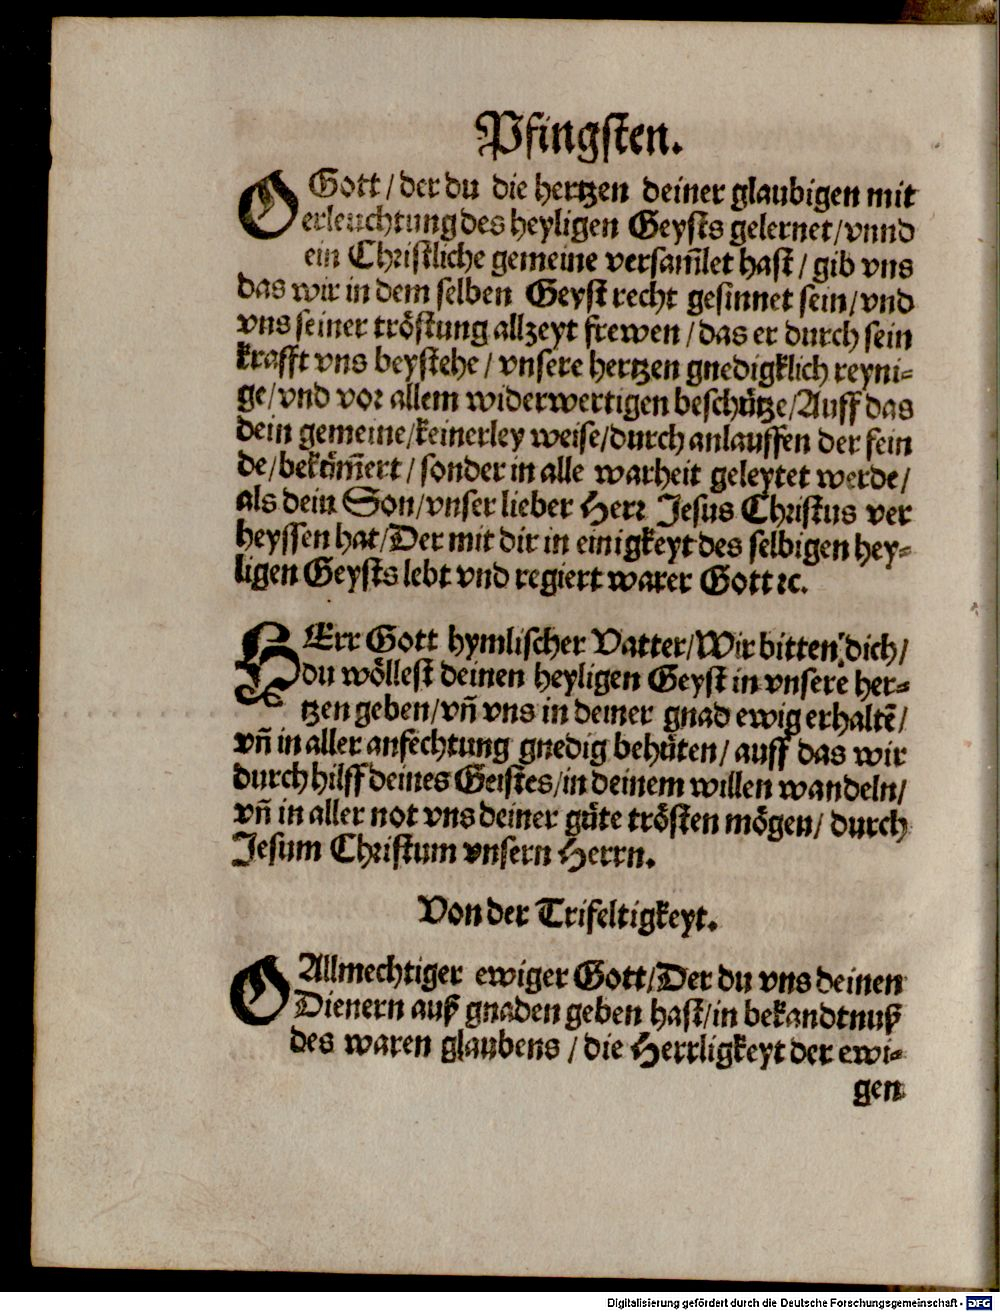 Pfingsten.
O Gott / der du die hertzen deiner glaubigen mit
erleuchtung des heyligen Geysts gelernet / vnnd
ein Christliche gemeine versam̃let hast / gib vns
das wir in dem selben Geyst recht gesinnet sein / vnd
vns seiner tröstung allzeyt frewen / das er durch sein
krafft vns beystehe / vnsere hertzen gnedigklich reyni-
ge / vnd vor allem widerwertigen beschütze / Auff das
dein gemeine / keinerley weise / durch anlauffen der fein
de / beküm̃ert / sonder in alle warheit geleytet werde /
als dein Son / vnser lieber Herr Jesus Christus ver
heyssen hat / Der mit dir in einigkeyt des selbigen hey-
ligen Geysts lebt vnd regiert warer Gott ⁊c.
HErr Gott hymlischer Vatter / Wir bitten dich /
du wöllest deinen heyligen Geyst in vnsere her-
tzen geben / vñ vns in deiner gnad ewig erhaltẽ /
vñ in aller anfechtung gnedig behüten / auff das wir
durch hilff deines Geistes / in deinem willen wandeln /
vñ in aller not vns deiner güte trösten mögen / durch
Jesum Christum vnsern Herrn.
Von der Trifeltigkeyt.
O Allmechtiger ewiger Gott / Der du vns deinen
Dienern auß gnaden geben hast / in bekandtnuß
des waren glaubens / die Herrligkeyt der ewi-
gen
Digitalisierung gefördert durch die Deutsche Forschungsgemeinschaft - DFG